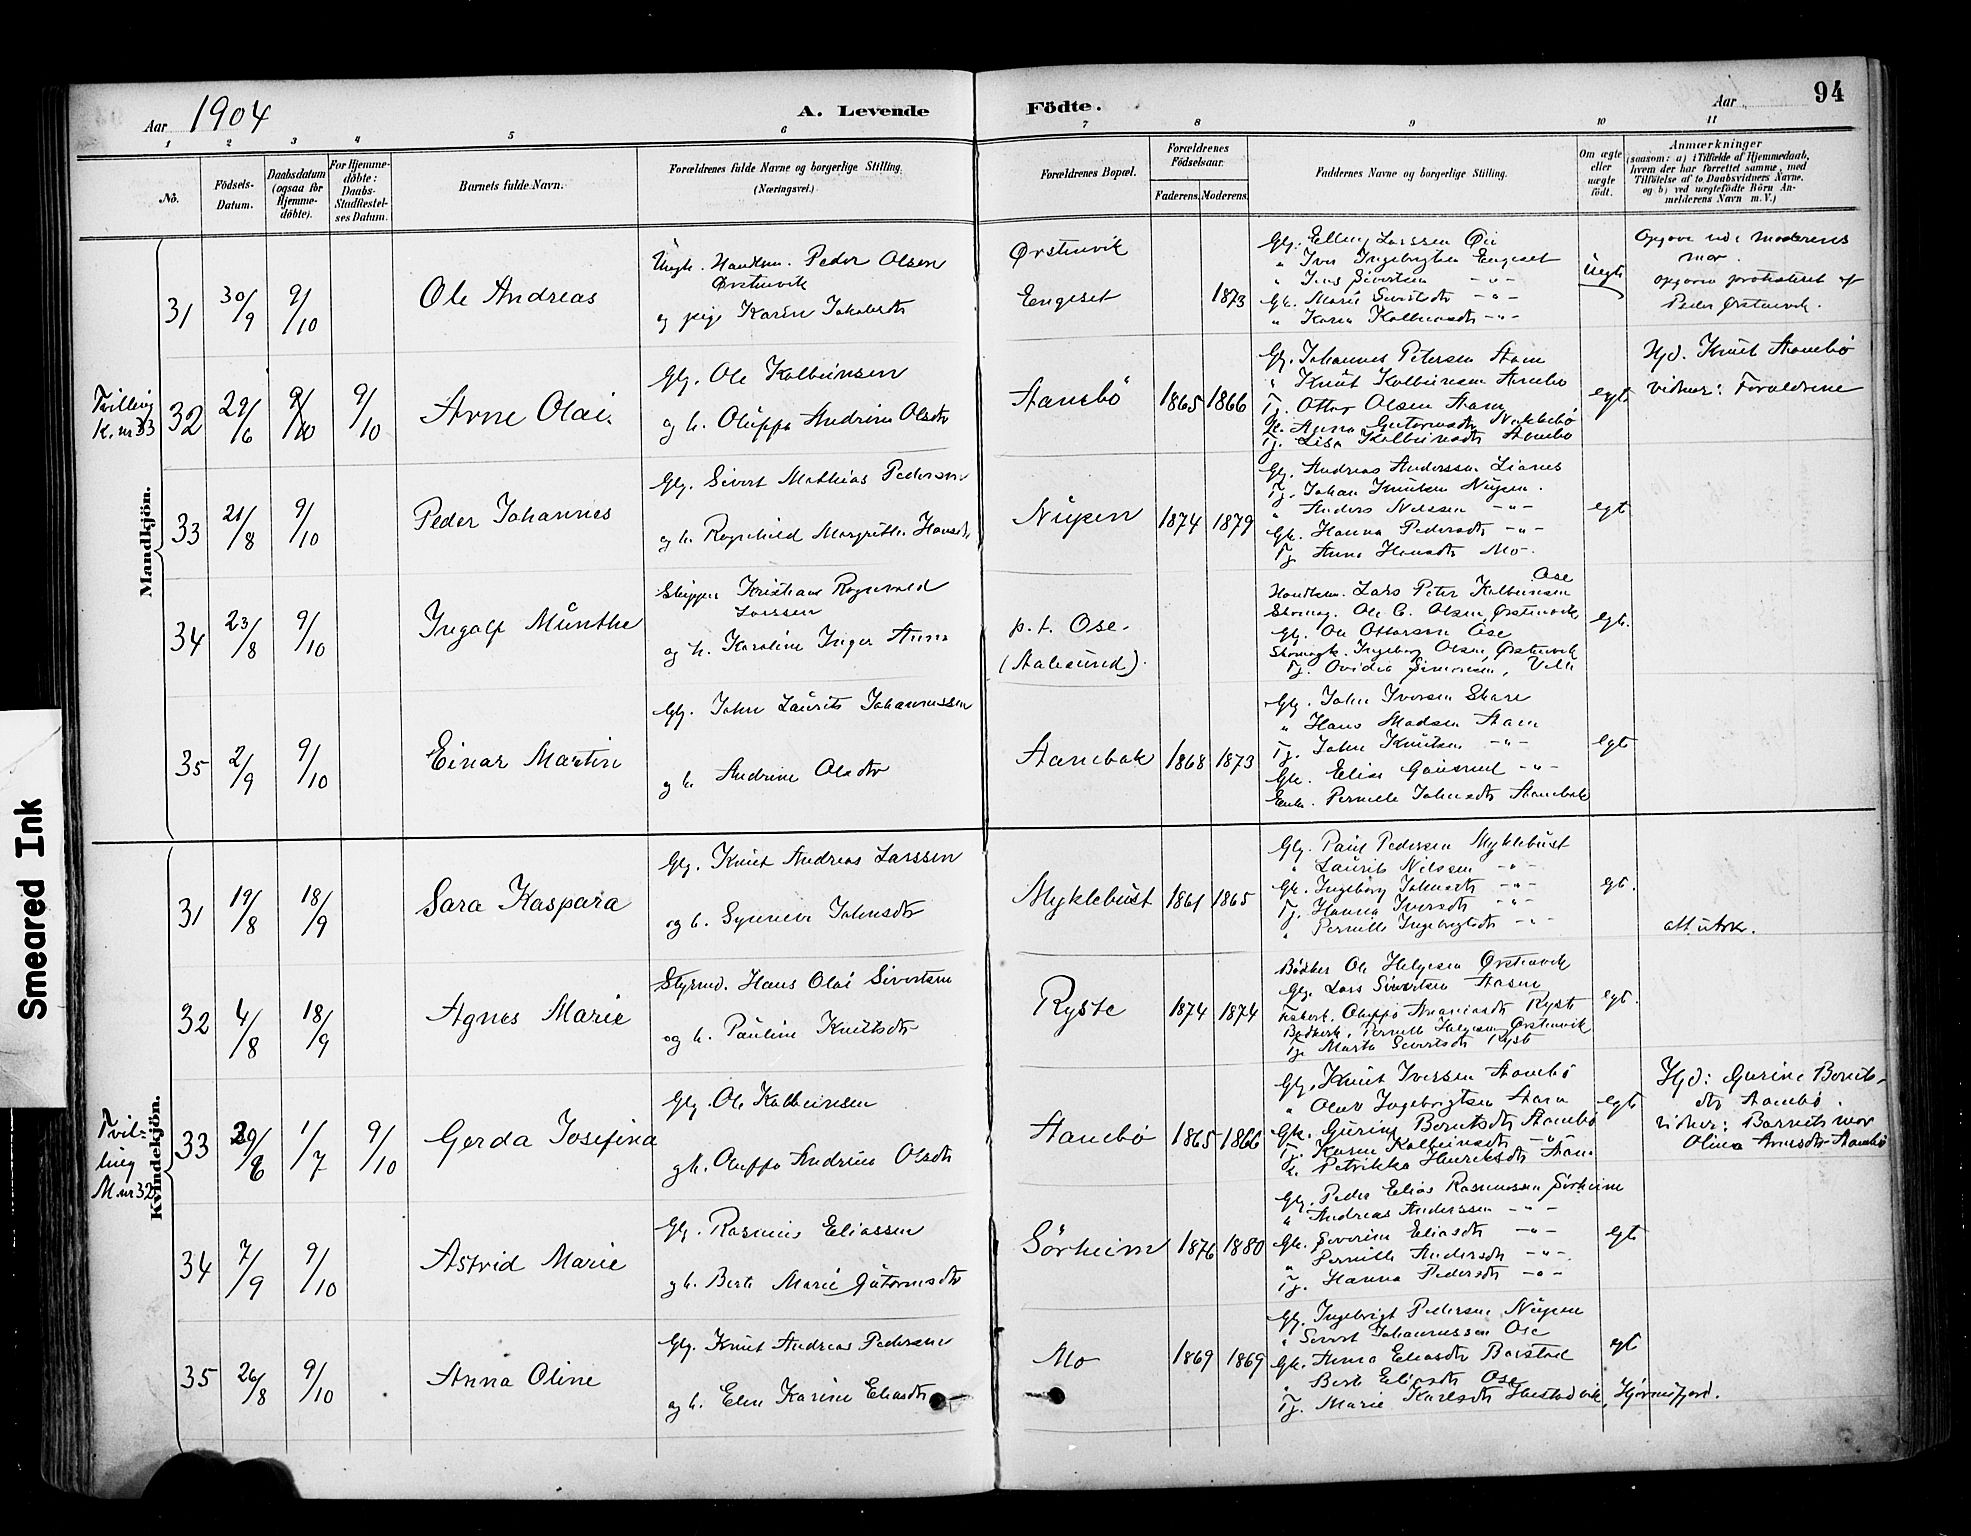 Aar 1904
A. Levende Födte.
Aar 94
1 2 3 4 5 6 7 8 9 10 11
No.
Födsels-Datum.
Daabsdatum (ogsaa for Hjemme-döbte).
For Hjemme-döbte: Daabs-Stadfestelses Datum.
Barnets fulde Navn.
Forældrenes fulde Navne og borgerlige Stilling.
(Næringsvei.)
Forældrenes Bopæl.
Forældrenes Födselsaar.
Faderens. Moderens.
Faddernes Navne og borgerlige Stilling.
Om ægte eller uægte født.
Anmærkninger
(saasom: a) i Tilfælde af Hjemmedaab,
hvem der har forrettet samme, med
Tilføielse af to Daabsvidners Navne,
og b) ved uægtefödte Börn An-
melderens Navn m. V.)
Mandkjön.
31 30/9 9/10 Ole Andreas
Ungk. Handlsm. Peder Olsen
Ørstenvik
og pige Karen Jakobsdtr
Ørstenvik
Engeset
1873
Gbr. Elling Larssen Øie
" Iver Ingebrigtsen Engeset
" Jens Sivertsen -"-
Gk. Marie Sivertsdtr -"-
" Karen Kolbeinsdtr -"-
Uegte
Opgave ved: Moderens
mor.
opgaven protesteret af
Peder Ørstenvik.
Tvilling
K. nr 33
32 29/6 9/10 9/10 Arne Olai.
Gbr. Ole Kolbeinsen
og h. Oluffa Andrine Olsdtr
Aamebö 1865 1866
Gbr. Johannes Petersen Aam
" Knut Kolbeinsen Aamebö
Tj. Ottar Olsen Aam
Gk. Anna Guttormsdtr Nekkebö
Tj. Lisa Kolbeinsdtr Aamebö
egt.
Hjd. Knut Aamebö
vidner: Forældrene
33 21/8 9/10 Peder Johannes
Gbr. Sivert Mathias Pedersen
og h. Ragnhild Margrethe Hansdtr
Nupen 1874 1879
Gbr. Andreas Anderssen Lianes
Tj. Johan Knutsen Nupen.
" Anders Nilssen -"-
Gk. Hanna Pedersdtr -"-
Tj. Anna Hansdtr Mo.
egt
34 23/8 9/10 Ingolf Munthe
Skipper Kristian Ragnvald
Larssen
og h. Karoline Inger Anna
p.t. Ose.
(Aalesund).
Handlsm. Lars Peter Kolbeinsen Ose
Skomag. Ole C. Olsen, Ørstenvik
Gbr. Ole Ottarsen Ose
Skomagk. Ingeborg Olsen, Ørstenvik
Tj. Ovidia Simonsen, Velle
egt.
35 2/9 9/10 Einar Martin
Gbr. John Laurits Johannessen
og h. Andrine Olsdtr
Aamebak 1868 1873
Gbr. John Iversen Skare
" Hans Madsen Aam
Tj. John Knutsen -"-
Gk. Elise -"-
Enke. Pernille Johnsdtr Aamebak
egt
Kvindekjön.
31 19/8 18/9 Sara Kaspara
Gbr. Knut Andreas Larssen
og h. Synneve Johnsdtr
Myklebust 1861 1865
Gbr. Paul Pedersen Myklebust
" Laurits Nilssen -"-
Gk. Ingeborg Johnsdtr -"-
Tj. Hanna Iversdtr -"-
" Pernille Ingebrigtsdtr -"-
egt.
att. utsk.
32 4/8 18/9 Agnes Marie
Styrmd. Hans Olai Sivertsen
og h. Pauline Knutsdtr
Ryste 1874 1874
Bödker Ole Helgesen Ørstenvik
Gbr. Lars Sivertsen Aasen
Fiskerk. Oluffa Ananiasdtr Ryst
Bödkerk. Pernille Helgesen Ørstenvik
Tj. Marta Sivertsdtr Ryst
egt.
Tvil-
ling
M. nr 32
33 29/6 1/7 9/10 Gerda Josefina
Gbr. Ole Kolbeinsen
og h. Oluffa Andrine Olsdtr
Aamebö 1865 1866
Gbr. Knut Iversen Aamebö
" Oluf Ingebrigtsen Aam
Gk. Gurine Berntsdtr Aamebö
Tj. Karen Kolbeinsdtr -"-
Petrikka Henriksdtr Aam.
egt
Hjd: Gurine Bernts-
dtr Aamebö.
vidner: Barnets mor
Olina Arnesdtr Aamebö
34 7/9 9/10 Astrid Marie
Gbr. Rasmus Eliassen
og h. Berte Marie Gutormsdtr
Sörheim 1876 1880
Gbr. Peder Elias Rasmussen Sörheim
" Andreas Anderssen -"-
Gk. Severine Eliasdtr -"-
" Pernille Andersdtr -"-
Tj. Hanna Pedersdtr -"-
egt
35 26/8 9/10 Anna Oline
Gbr. Knut Andreas Pedersen
og h. Elen Karine Eliasdtr
Mo 1869 1869
Gbr. Ingebrigt Pedersen Nupen
" Sivert Johannessen Ose
Gk. Anna Eliasdtr Barstad
" Berte Eliasdtr Ose
Tj. Marie Karlsdtr Hustadvik, Hjörnefjord.
egt
Smeared Ink